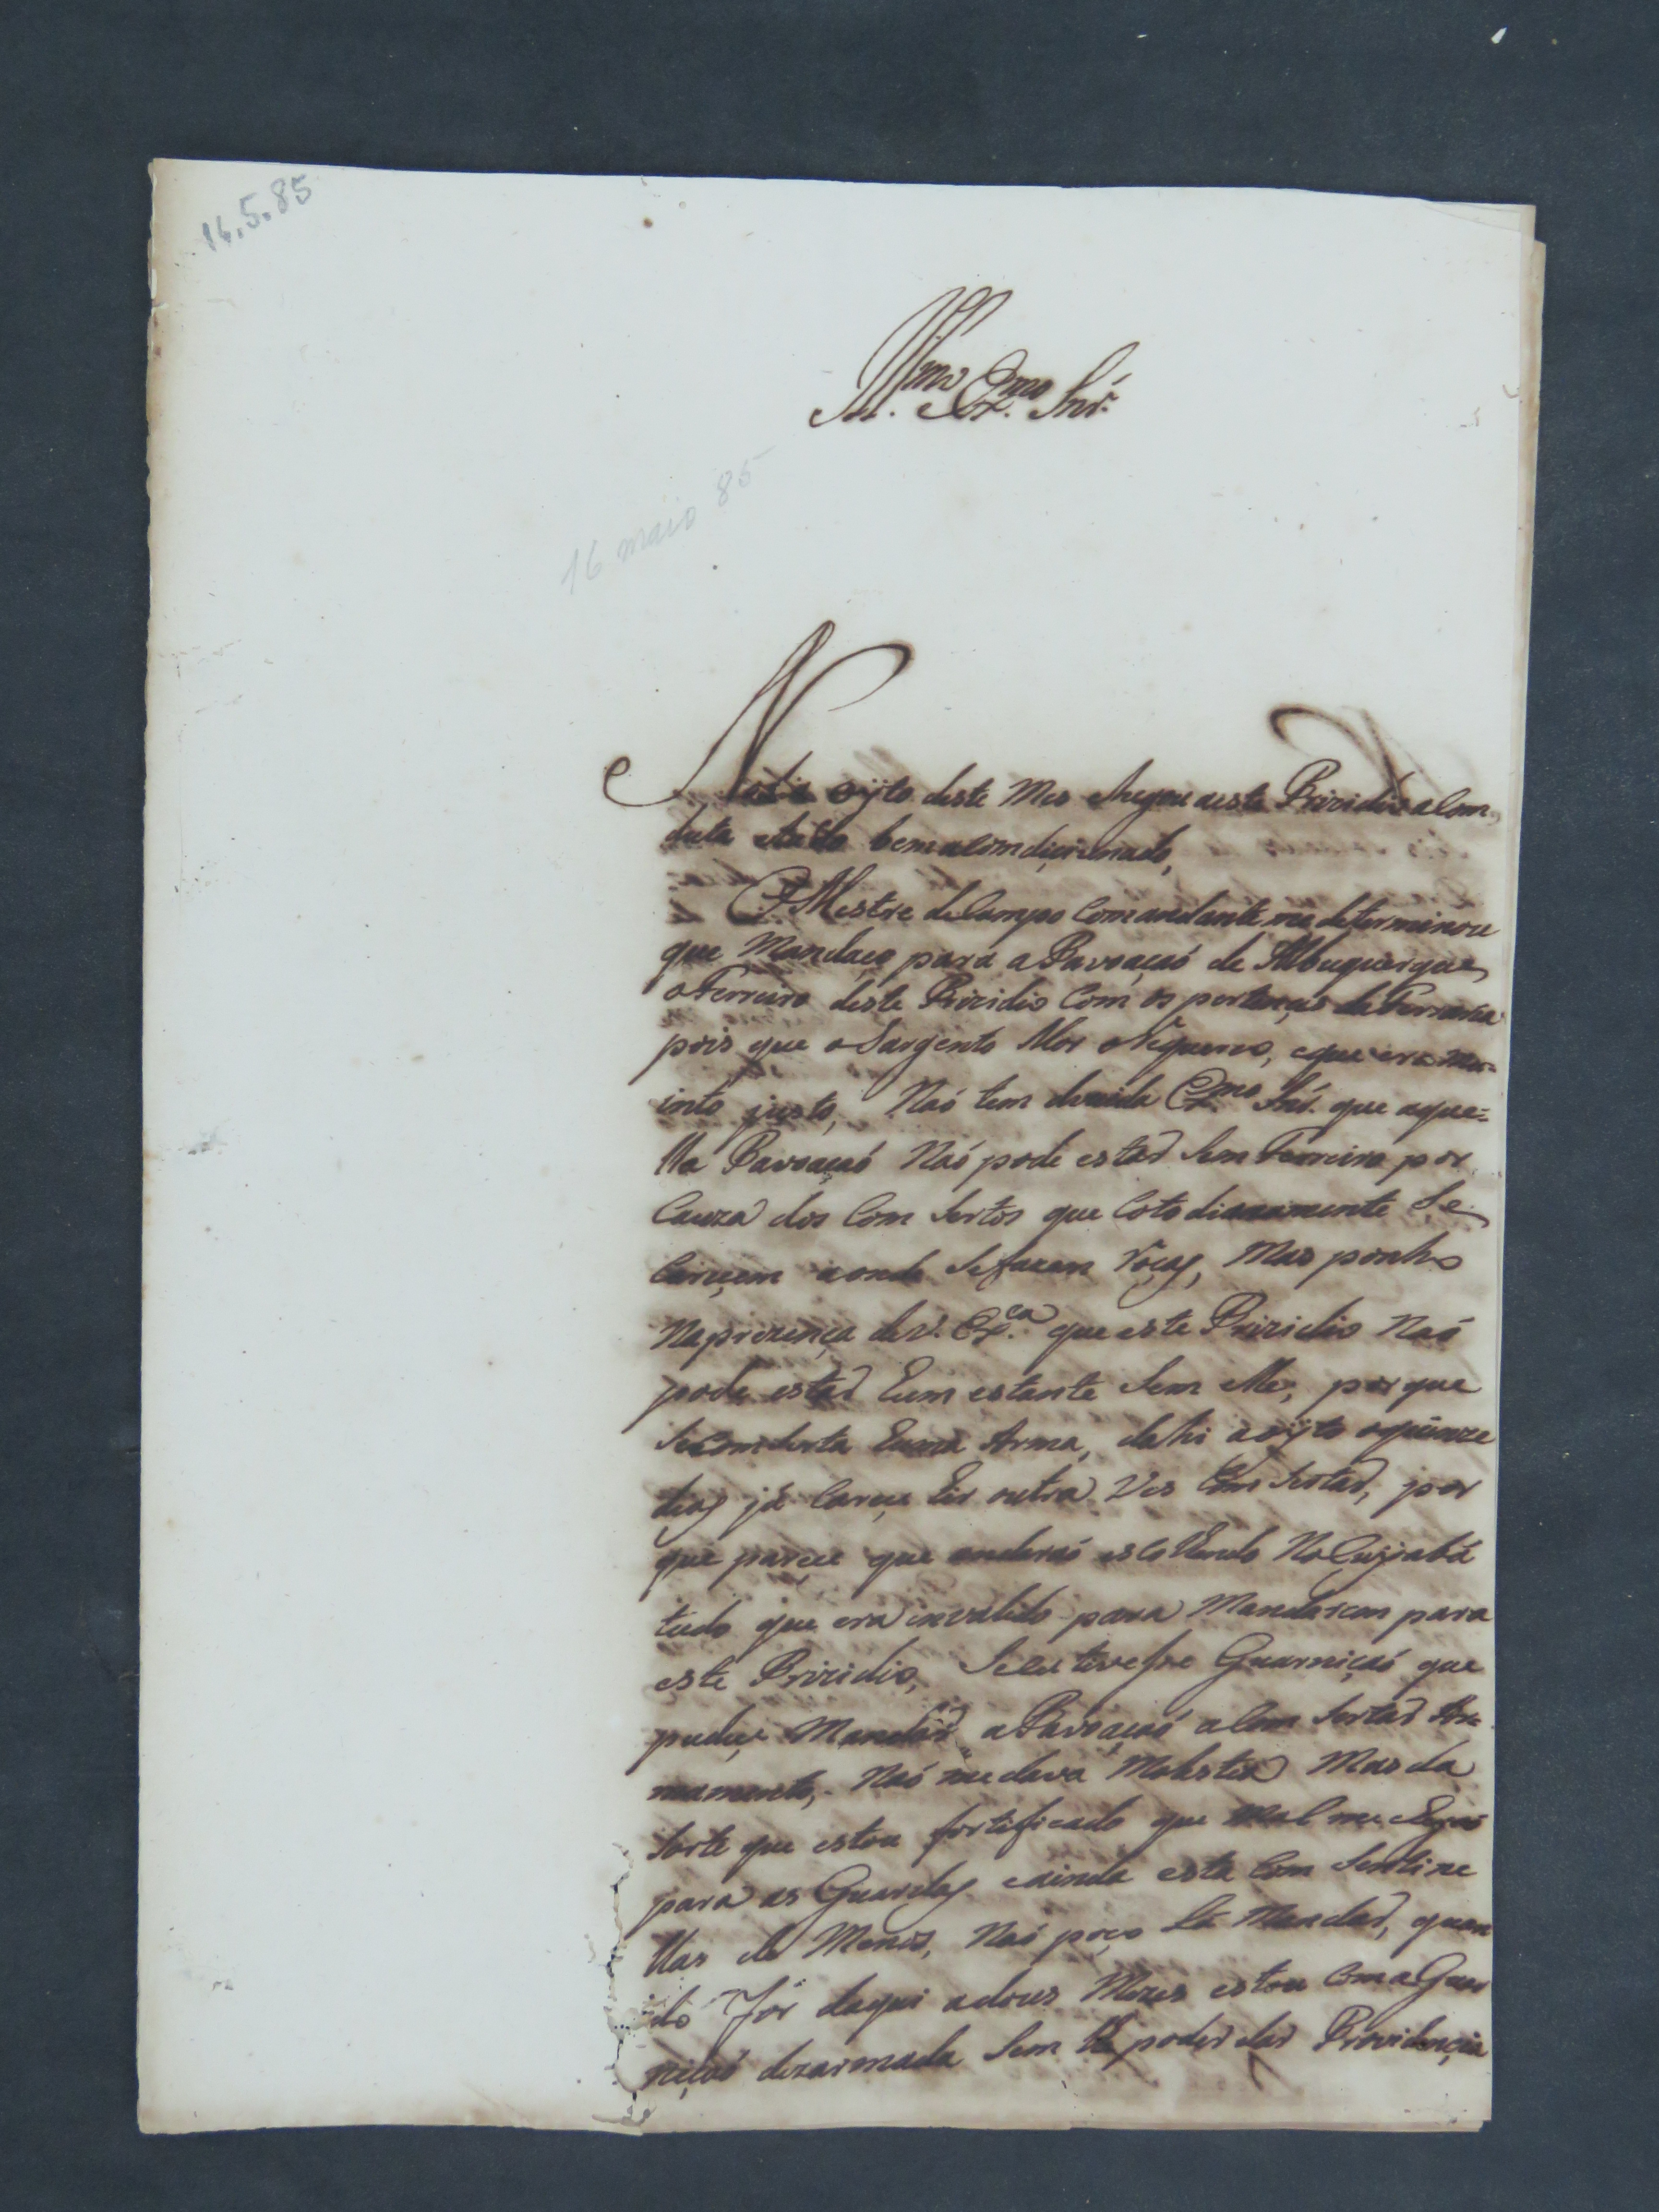 16.5.85
Ill.mo Ex.mo Snr.
16 maio 85
No dia oyto deste Mes chegou aeste Prizidio a Com-
duta e tudo bem acomdiçionado,
O Mestre de Campo Comandante me determinou
que Mandaçe para a Pavoaçaó de Albuquerque
o Ferreiro deste Prizidio Com os pertençes da Ferraria
pois que o Sargento Mor o Requereo, e que era mu-
into justo, Naó tem duvida Ex.mo Snr. que aque-
lla Pavoaçaó Naó pode estar Sem Ferreiro por
Cauza dos Com Sertos que Cotodianamente Se
Careçem aonde Sefazem roças, Mas ponho
Naprezença de V. Ex.ca que este Prizidio Naó
pode estar hum estante Sem elle, por que
Secomserta huma Arma, dahi a oyto o quinze
dias já Careçe Ser outra Ves Com Sertar, por
que pareçe que andaraó escolhendo No Cuyabá
tudo que era invalido para Mandarem para
este Prizidio, Se eu tivesse Guarniçaó que
pudeçe Mandar a Pavoaçaó a Com Sertar Ar-
mamento, Naó me dava Molestia Mas da
Sorte que estou fortificado que mal me chega
para as Guardas e ainda esta Com Sentine
llas de Menos, Naó poço lá Mandar, quan
do for daqui a dous Mezes estou Com a Guar
niçaó dezarmada Sem lhe poder dar Providençia